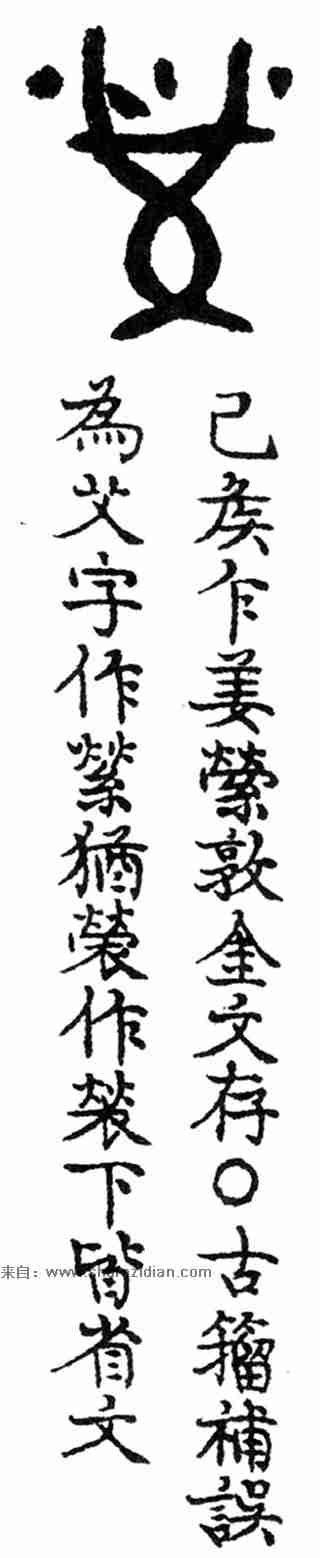 己矦乍姜縈敦金文存〇古籀補誤
為艾字作縈猶褮作下皆省文
来自：www.shufazidian.com